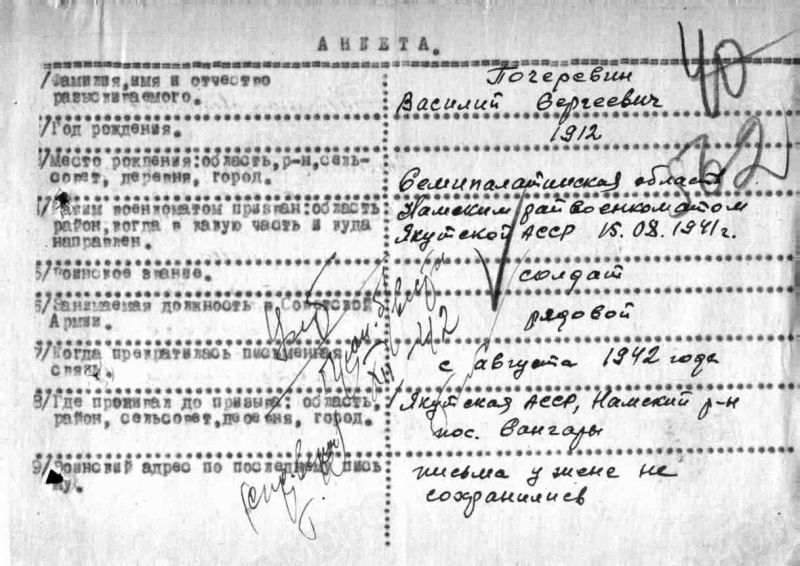 АНКЕТА.
1/Фамилия,имя и отчество
разыскиваемого.
Почеревин
Василий Сергеевич
40
2/Год рождения.
1912
3/Место рождения:область,р-н,сель-
совет, деревня, город.
Семипалатинская область
4/Каким военкоматом призван:область
район,когда в какую часть и куда
направлен.
Намским райвоенкоматом
Якутской АССР 15.08.1941г.
5/Воинское звание.
солдат
6/Занимаемая должность в Советской
Армии.
рядовой
7/Когда прекратилась письменная
связь.
с августа 1942 года
8/Где проживал до призыва: область,
район, сельсовет,деревня, город.
Якутская АССР, Намский р-н
пос. Вангары
9/Воинский адрес по последнему пись
му.
письма у жене не
сохранились
XII-42